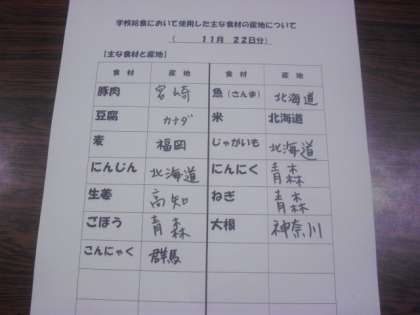 学校給食において使用した主な食材の産地について
( 11月 22日分)
【主な食材と産地】
食材 産地 食材 産地
豚肉 宮崎 魚(さんま) 北海道
豆腐 カナダ 米 北海道
麦 福岡 じゃがいも 北海道
にんじん 北海道 にんにく 青森
生姜 高知 ねぎ 青森
ごぼう 青森 大根 神奈川
こんにゃく 群馬